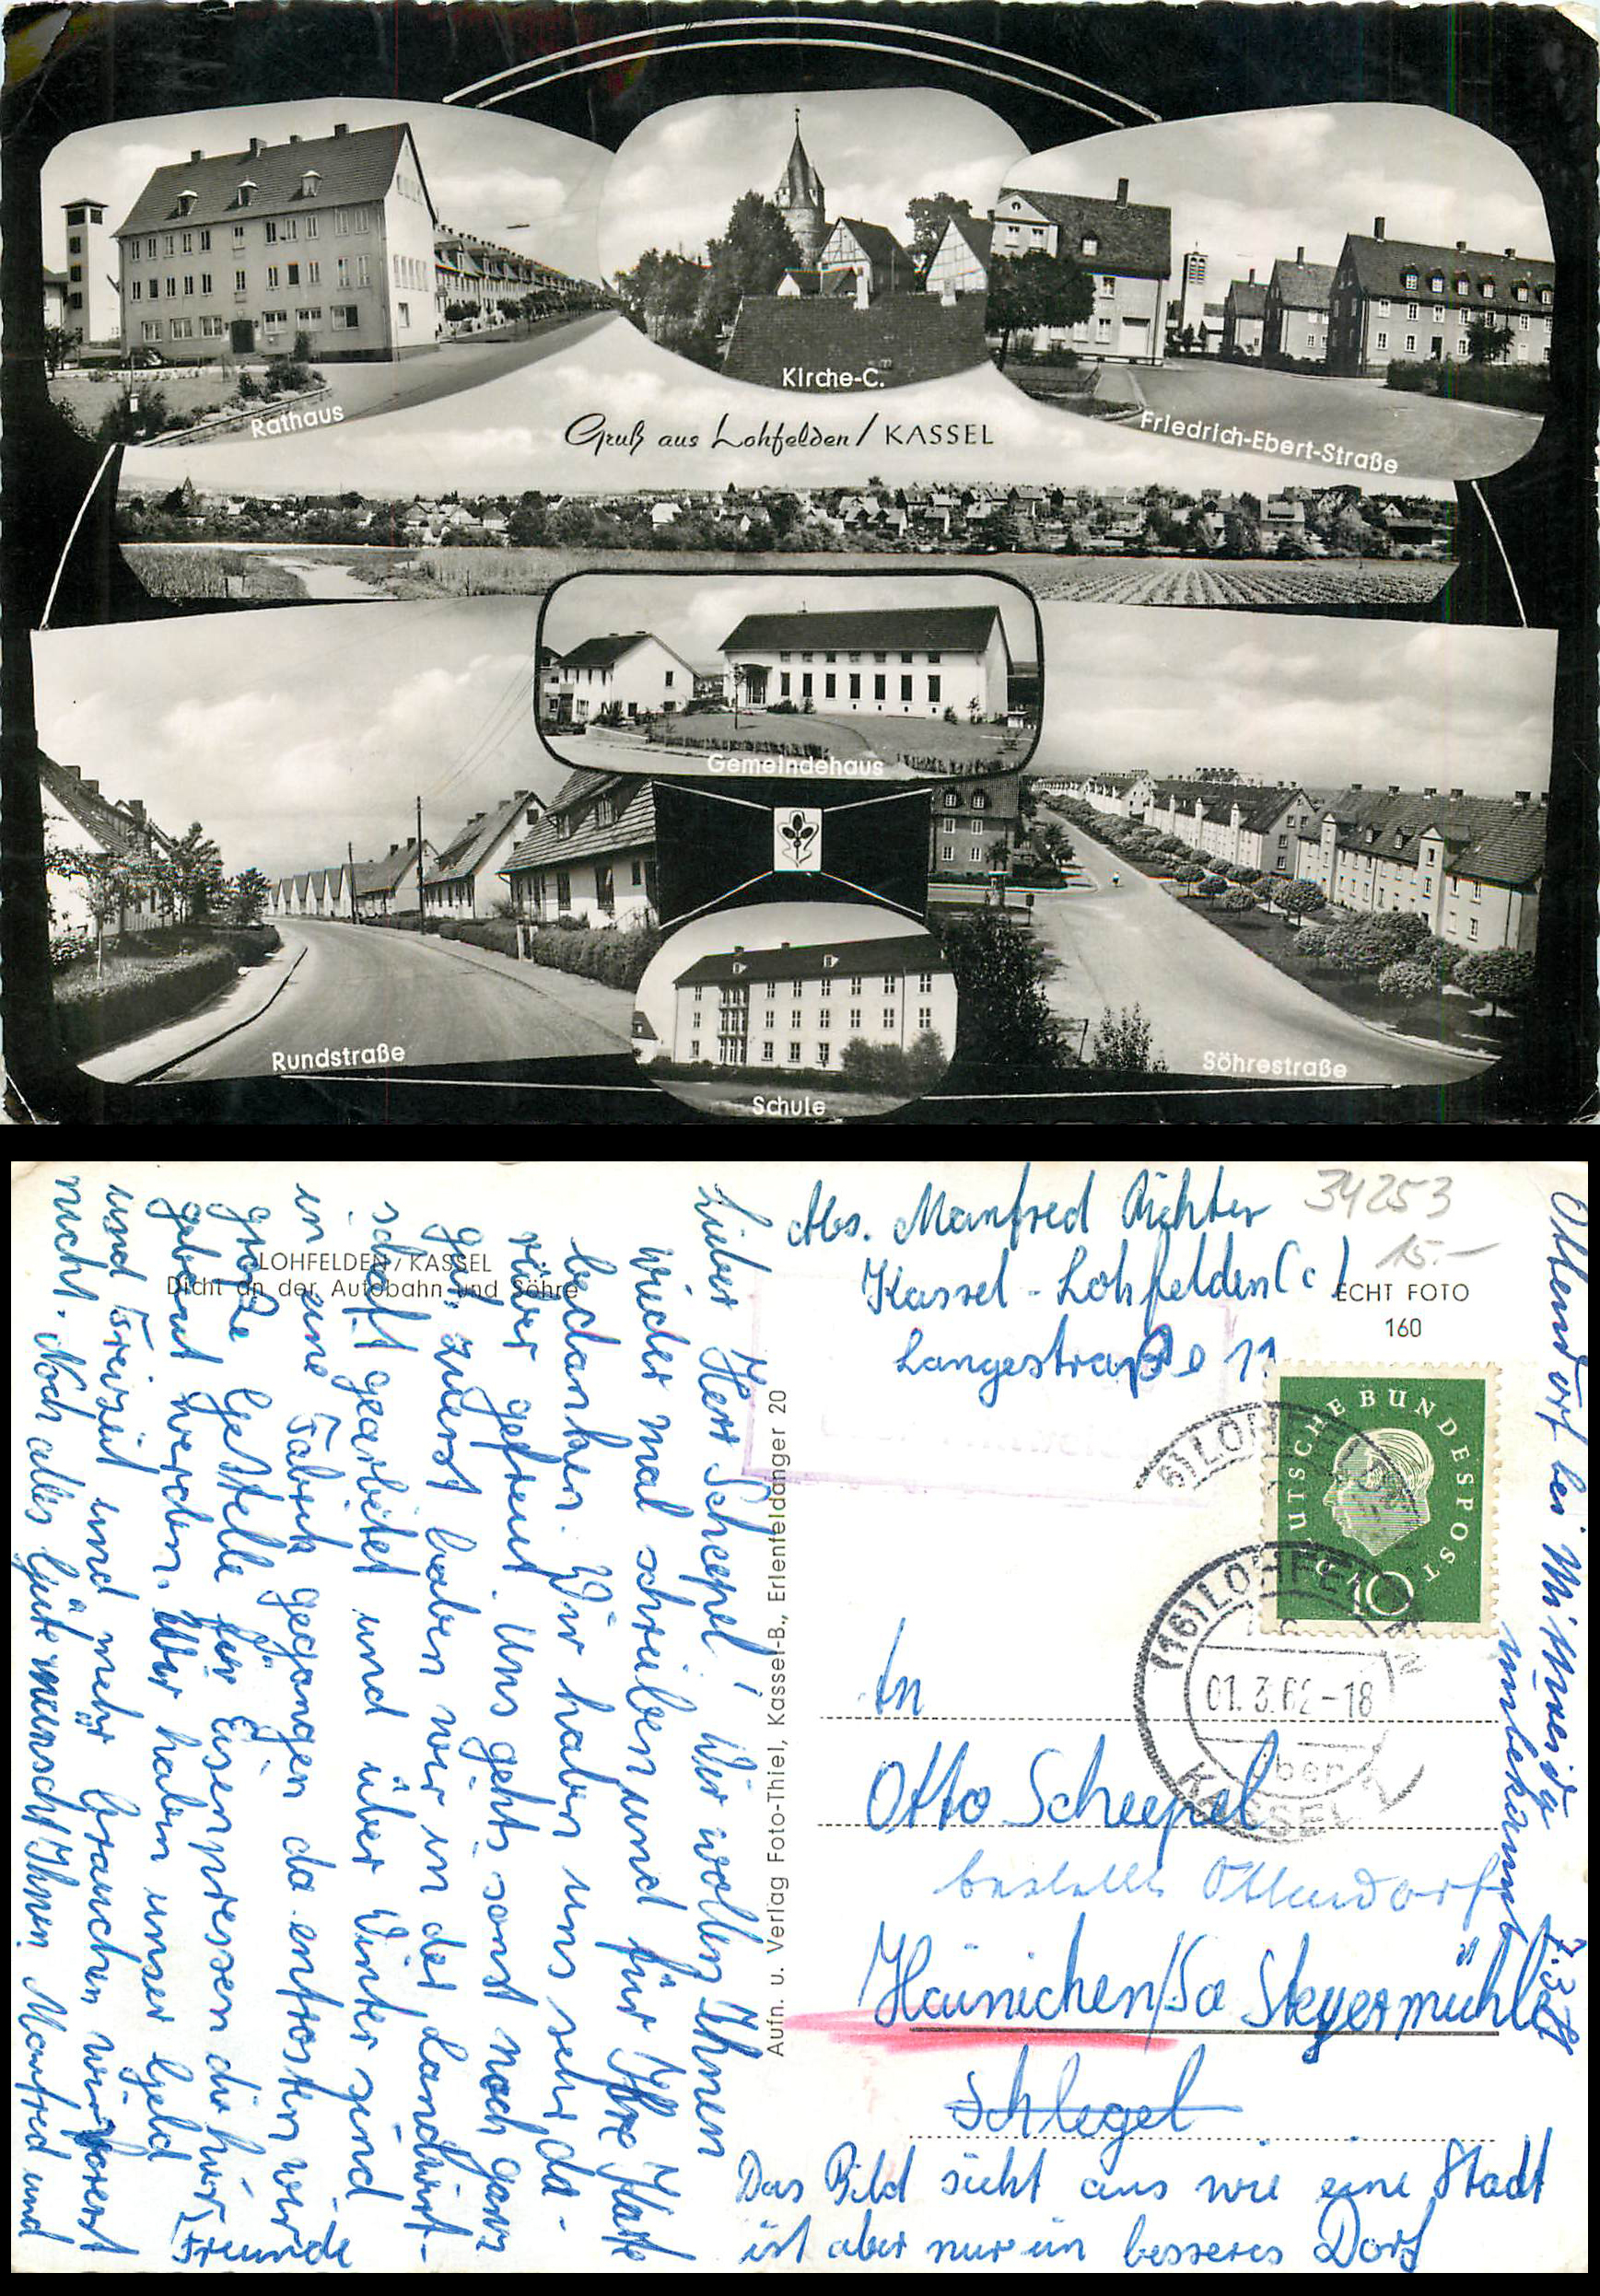 Rathaus
Kirche-C.
Friedrich-Ebert-Straße
Gruß aus Lohfelden/KASSEL
Gemeindehaus
Rundstraße
Söhrestraße
Schule
LOHFELDEN/KASSEL
Dicht an der Autobahn und Söhre
Lieber Herr Scheepel! Wir wollen Ihnen
wieder mal schreiben und für Ihre Karte
bedanken. Wir haben uns sehr da-
rüber gefreut. Uns gehts sonst noch ganz
gut, zuerst haben wir in der Landwirt-
schaft gearbeitet und über Winter sind
in eine Fabrik gegangen da entrosten wir
große Gestelle für Eisenpressen die hier
gebaut werden. Wir haben unser Geld
und Freizeit und mehr brauchen wir vorerst
nicht. Noch alles Gute wünscht Ihnen Manfred und
Freunde
Aufn. u. Verlag Foto-Thiel, Kassel-B., Erlenfeldanger 20
Abs. Manfred Richter
Kassel-Lohfelden (c)
Langestraße 11
34253
15.-
ECHT FOTO
160
DEUTSCHE BUNDESPOST
10
(16) LOHFELDEN
01.3.62-18
über
KASSEL 7
An
Otto Scheepel
Ottendorf
Hainichen/Sa Steyermühle
Schlegel
Das Bild sieht aus wie eine Stadt
ist aber nur ein besseres Dorf
Ottendorf bei Mittweida
unbekannt